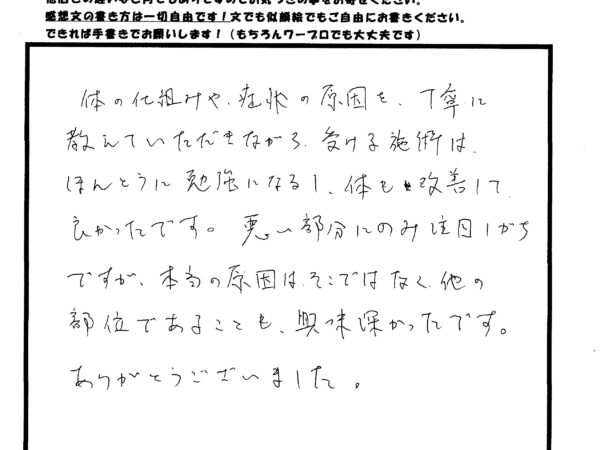 感想文の書き方は一切自由です！文でも似顔絵でもご自由にお書きください。
できれば手書きでお願いします！（もちろんワープロでも大丈夫です）
体の仕組みや、症状の原因を、丁寧に
教えていただきながら、受ける施術は、
ほんとうに勉強になるし、体も改善して
良かったです。悪い部分にのみ注目しがち
ですが、本当の原因は、そこではなく、他の
部位であることも、興味深かったです。
ありがとうございました。